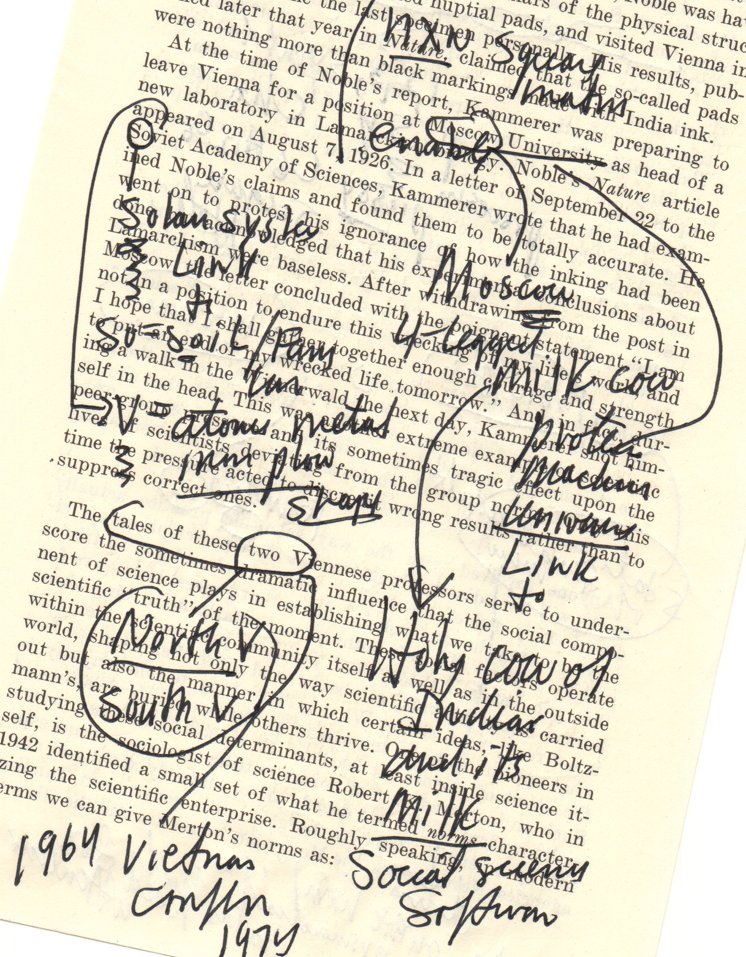 nuptial pads, and visited Vienna in
later that year in Nature, claimed that the so-called pads
were nothing more than black markings made with India ink.
At the time of Noble's report, Kammerer was preparing to
leave Vienna for a position at Moscow University as head of a
new laboratory in Lamarckian Noble's Nature article
appeared on August 7, 1926. In a letter of September 22 to the
Soviet Academy of Sciences, Kammerer wrote that he had exam-
ined Noble's claims and found them to be totally accurate. He
went on to protest his ignorance of how the inking had been
done acknowledged that his experimental conclusions about
Lamarckism were baseless. After withdrawing from the post in
Moscow letter concluded with the poignant statement "I am
not in a position to endure this wrecking of my life's work and
I hope that I shall gather together enough courage and strength
to put an end of my wrecked life tomorrow." And in fact, dur-
ing a walk in the the next day, Kammerer shot him-
self in the head. This was extreme
peer and its sometimes tragic effect upon the
lives of scientists deviating from the group norm. this
time the pressure acted to wrong results rather than to
suppress correct ones.
The tales of these two Viennese professors serve to under-
score the sometimes dramatic influence that the social compo-
nent of science plays in establishing what we take to be the
scientific "truth" of the moment. These factors operate
within the scientific community itself as well as in the outside
world, shaping not only the way scientific is carried
out but also the manner in which certain ideas, like Boltz-
mann's, are buried while others thrive. One of the pioneers in
studying these social determinants, at least inside science it-
self, is the sociologist of science Robert K. Merton, who in
1942 identified a small set of what he termed norms character-
izing the scientific enterprise. Roughly speaking, in modern
terms we can give Merton's norms as:
NXN Square
matrix
Solar system
Link
to
V = atoms metal
shape
Moscow
4-legged
Milk cow
protein
machine
Link
to
Holy cow of
Indias
and its
Milk
Social science
Software
North V
South V
1964 Vietnam
1974